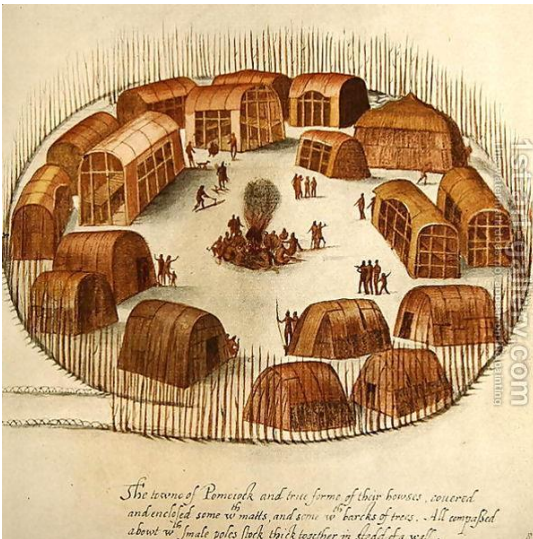 The towne of Pomeiock and true forme of their howses, couered
and enclosed some wth matts, and some wth barcks of trees. All compassed
abowt wth smale poles stock thick together in stedd of a wall.
1st-Art-Gallery.com